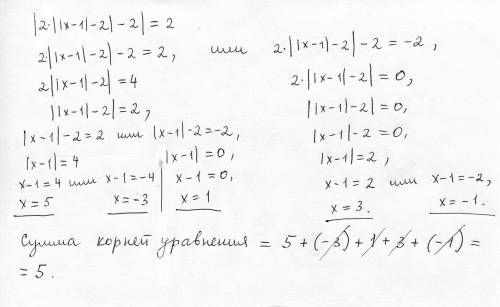 |2·||x-1|-2|-2| = 2
2·||x-1|-2|-2 = 2, или 2·||x-1|-2|-2 = -2,
2||x-1|-2| = 4 2·||x-1|-2| = 0,
||x-1|-2| = 2, ||x-1|-2| = 0,
|x-1|-2 = 2 или |x-1|-2 = -2, |x-1|-2 = 0,
|x-1| = 4 |x-1| = 0, |x-1| = 2,
x-1 = 4 или x-1 = -4 x-1 = 0, x-1 = 2 или x-1 = -2,
x = 5 x = -3 x = 1 x = 3. x = -1.
Сумма корней уравнения = 5 + (-3) + 1 + 3 + (-1) =
= 5.